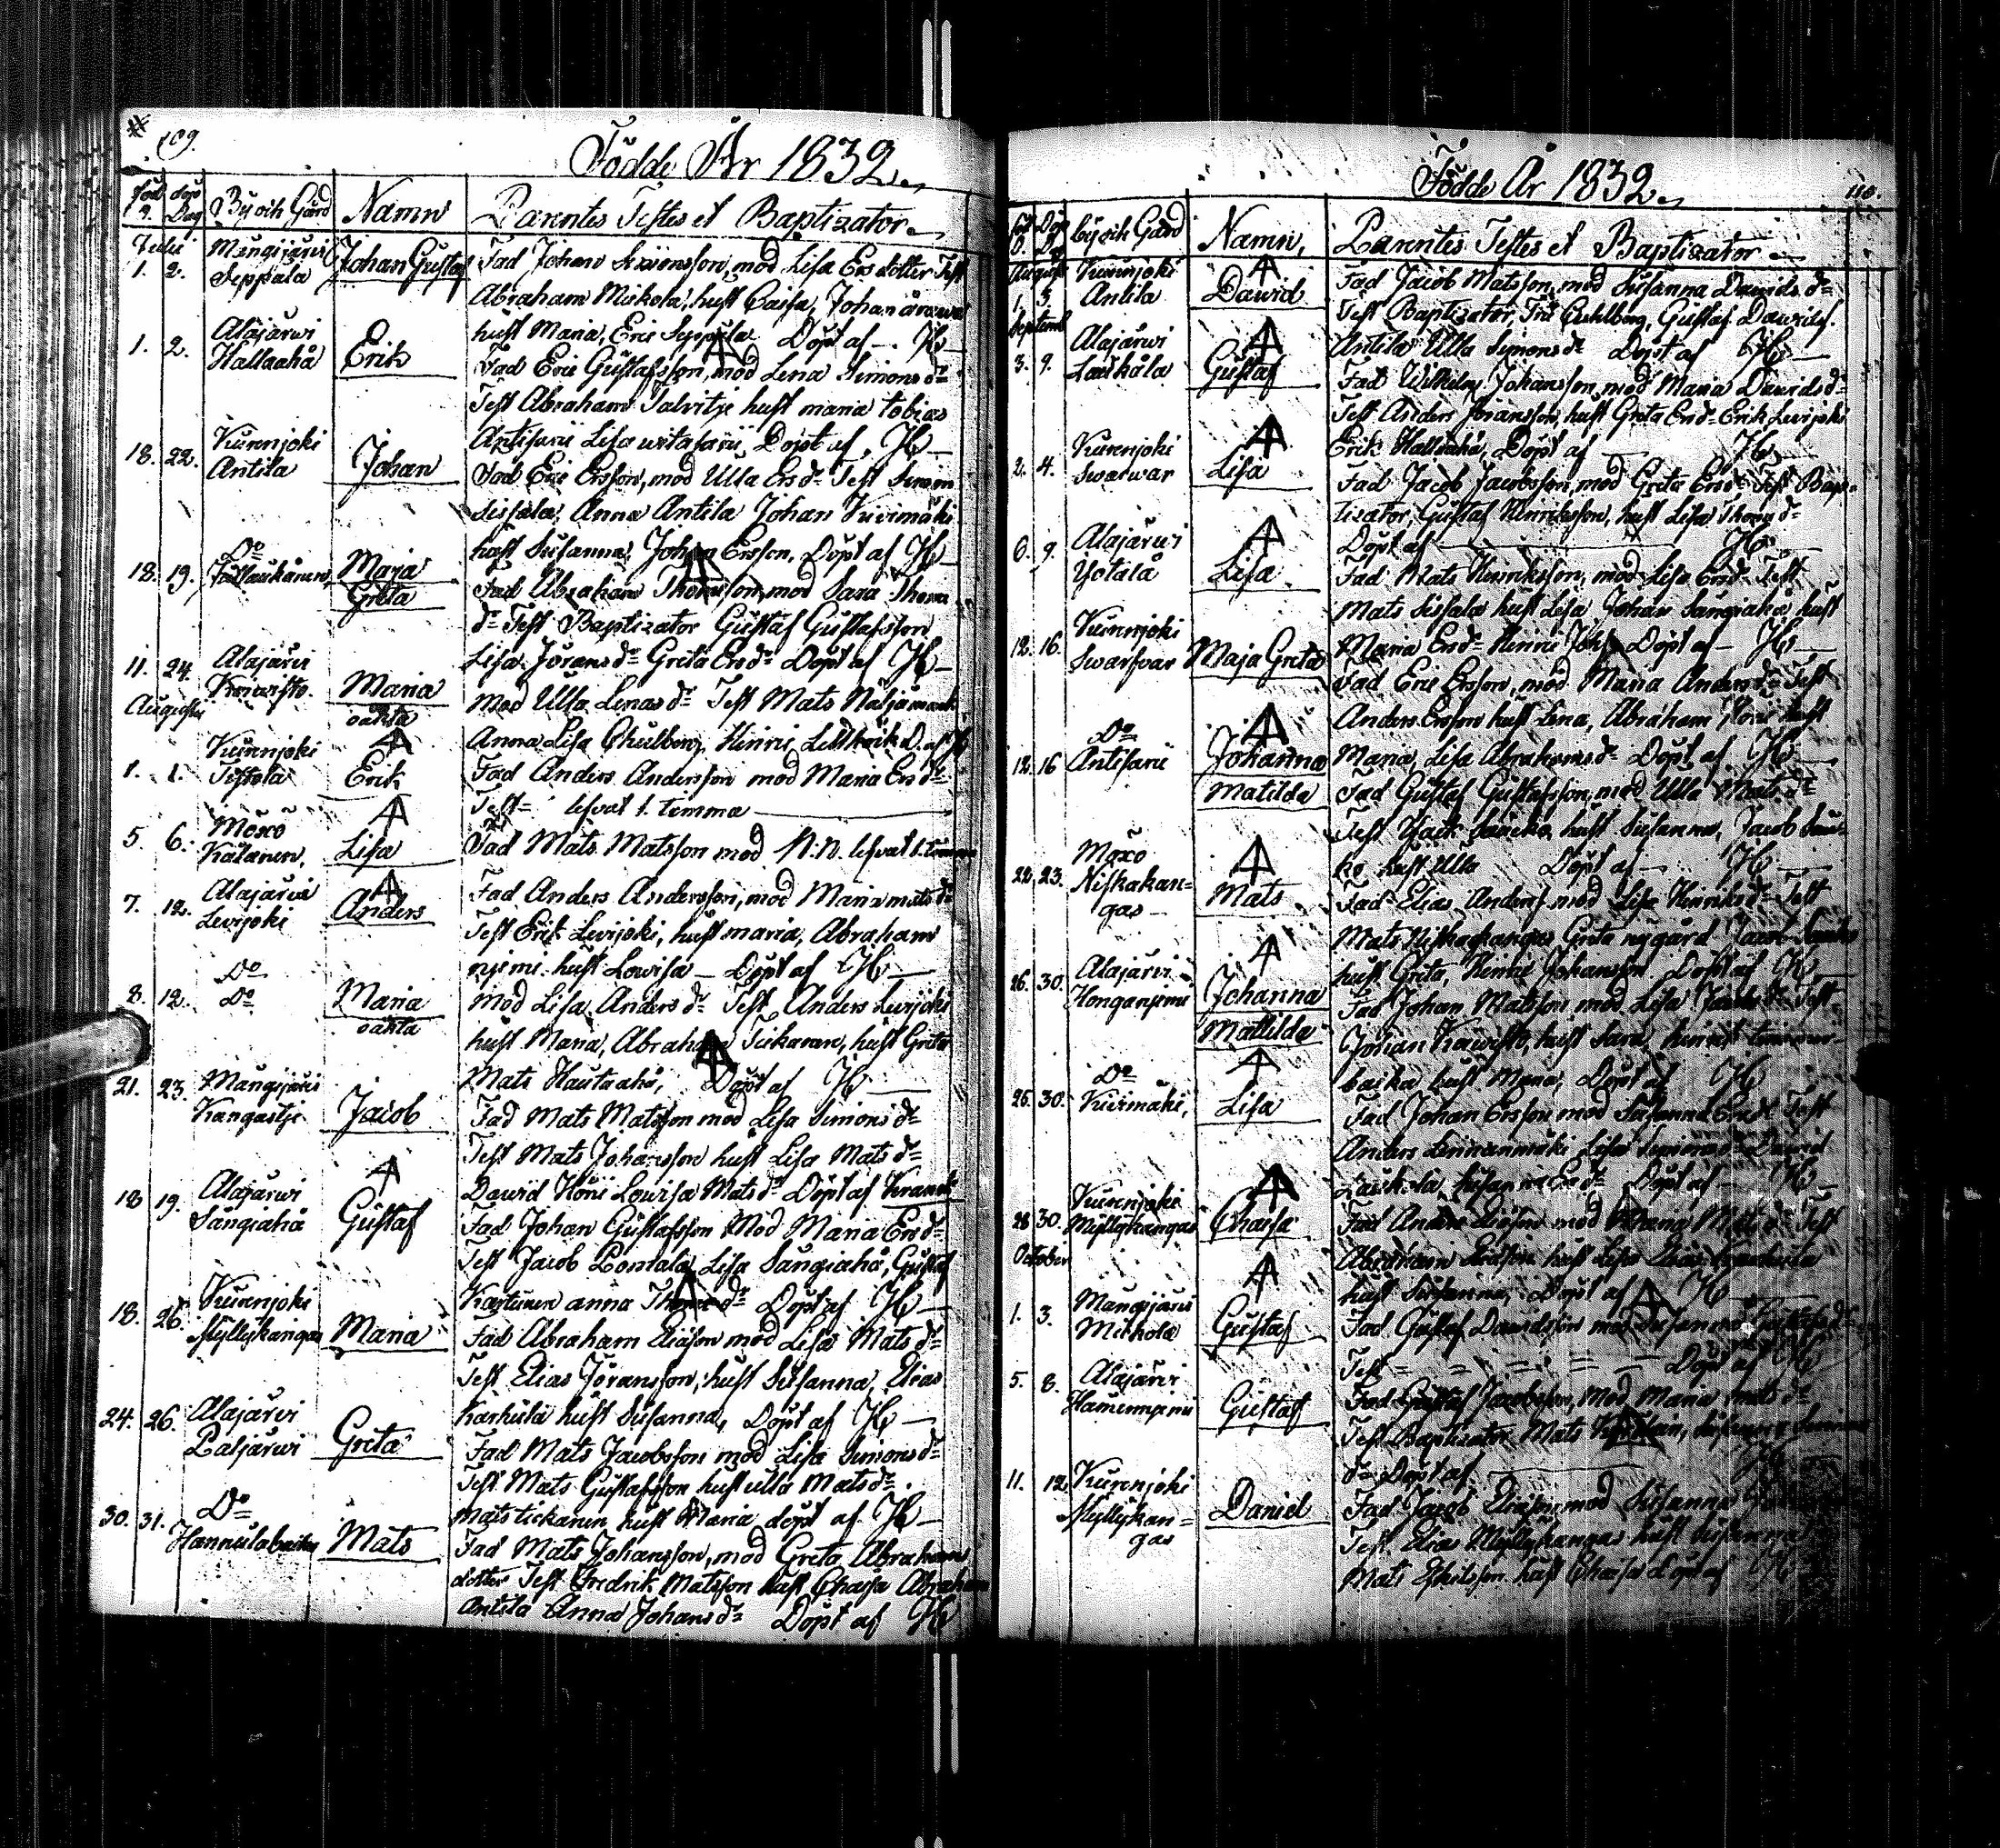 109.
Födde År 1832.
Föd D. döp Dag By och Gård Namn Parentes Testes et Baptizator
Julii
1. 2. Mengijärvi Seppälä Johan Gustaf Fad Johan Simonsson, mod Lisa Ersdotter Test
Abraham Mickola, hust Caisa, Johan
hust Maria, Eric Seppälä Döpt af H
1. 2. Alajärwi Hallaahå Erik Fad Eric Gustafsson, mod Lena Simons dr
Test Abraham Talvitje hust maria tobias
Antisarii Lisa Döpt af H
18. 22. Kurenjoki Antila Johan Fad Eric Ersson, mod Ulla Ers dr Test Simon
Sissala, Anna Antila Johan Kivimäki
hust Susanna, Johan Ersson, Döpt af H
18. 19. Do Maria Greta Fad Abraham Thomasson, mod Sara Thoma
dr Test Baptizator Gustaf Gustafsson
Lisa Jörans dr Greta Ers dr Döpt af H
11. 24. Alajärvi Koiwisto. Maria oäkta Mod Ulla Lenas dr Test Mats
Anna Lisa Chulberg, Henric D. af H
Augusti
1. 1. Kurenjoki Erik Fad Anders Andersson mod Maria Ers dr
Test= lefvat 1. temma
5. 6. Möxö Kätänen, Lisa Fad Mats Matsson mod N:N. lefvat 1. temma
7. 12. Alajärwi Levijoki Anders Fad Anders Andersson, mod Maria mats dr
Test Erik Levijoki, hust maria, Abraham
njemi hust Lowisa Döpt af H
8. 12. Do Do Maria oäkta Mod Lisa Anders dr Test Anders Levijoki
hust Maria, Abraham Tickanen, hust Greta
Mats Hautaahå, Döpt af H
21. 23. Mengijärvi Kangastje Jacob Fad Mats Matsson mod Lisa Simons dr
Test Mats Johansson hust Lisa Mats dr
Dawid Lowisa Mats dr Döpt af Krank
18 19. Alajärwi Sängiahå Gustaf Fad Johan Gustafsson Mod Maria Ers dr
Test Jacob Lontala Lisa Sängiahå, Gustaf
Karturen anna Thomas dr Döpt af H
18. 26. Kurenjoki Myllykangas Maria Fad Abraham Eliasson mod Lisa Mats dr
Test Elias Jöransson, hust Susanna Elias
Karhula hust Susanna, Döpt af H
24. 26. Alajärvi Paljärwi Greta Fad Mats Jacobsson mod Lisa Simons dr
Test Mats Gustafsson hust ulla Mats dr
Mats tickanen hust Maria döpt af H
30. 31. Do Hannulabacka Mats Fad Mats Johansson, mod Greta Abrahams
dotter Test Fredrik Matsson hust Chaisa Abraham
Antila Anna Johans dr Döpt af H
110.
Födde År 1832.
Föd D. Döp D. By och Gård Namn, Parentes Testes et Baptizator
Augusti
1. 3. Kurenjoki Antila Dawid Fad Jacob Matsson, mod Susanna Davids dr
Test Baptizator, Fru Cuhlberg, Gustaf Dawids.
Antila Ulla Simons dr Döpt af H
Septemb
3. 9. Alajärwi Laukåla Gustaf Fad Wilhelm Johansson, mod Maria Dawids dr
Test Anders Jöransson, hust Greta Ers d. Erik Levijoki
Erik Hallaahå, Döpt af H
2. 4. Kurenjoki Swarwar Lisa Fad Jacob Jacobsson, mod Greta Ers dr Test Bap-
tizator, Gustaf Henriksson, hust Lisa Thoms dr
Döpt af H
6. 9. Alajärwi Yötälä Lisa Fad Mats Henriksson, mod Lisa Ers dr Test
Mats Sissala hust Lisa Johan Sängiahå hust
Maria Ers dr Henric Johs Döpt af H
12. 16. Kurenjoki Swarfvar Maja Greta Fad Eric Ersson, mod Maria Anders dr Test
Anders Ersson hust Lena, Abraham hust
Maria, Lisa Abrahams dr Döpt af H
12. 16 Do Antisarii Johanna Matilda Fad Gustaf Gustafsson, mod Ulla Mats dr
Test Isack Saucko, hust Susanna, Jacob Sau-
ko hust Ulla Döpt af H
22. 23. Möxö Niskakan= gas Mats Fad Elias Anders. mod Lisa Henriks dr Test
Mats Niskakangas Greta nygård Jacob
hust Greta, Henric Johansson Döpt af H
26. 30. Alajärvi Honganjemi Johanna Mattilda Fad Johan Matsson mod Lisa Test
Johan Koiwisto, hust Sara, timmer-
backa hust Maria, Döpt af H
25. 30. Do Kivimäki, Lisa Fad Johan Ersson mod Susanna Ers dr Test
Anders Lisa Simons dr David
Laukola, Susanna Ers dr Döpt af H
28 30. Kurenjoki Myllykangas Chaisa Fad Anders Eliasson mod Maria Mats dr Test
Abraham Eliasson hust Lisa Elias
hust Susanna, Döpt af H
October
1. 3. Mengijärvi Mickola Gustaf Fad Gustaf Davidsson mod Susanna
Test = = = = = Döpt af H
5. 8. Alajärvi Hamernjemi Gustaf Fad Gustaf Jacobsson, mod Maria mats dr
Test Baptizator Mats Susanna
dr Döpt af H
11. 12. Kurenjoki Myllykan= gas Daniel Fad Jacob Eliasson, mod Susanna
Test Elias Myllykangas hust Susanna
Mats hust Chaisa Döpt af H